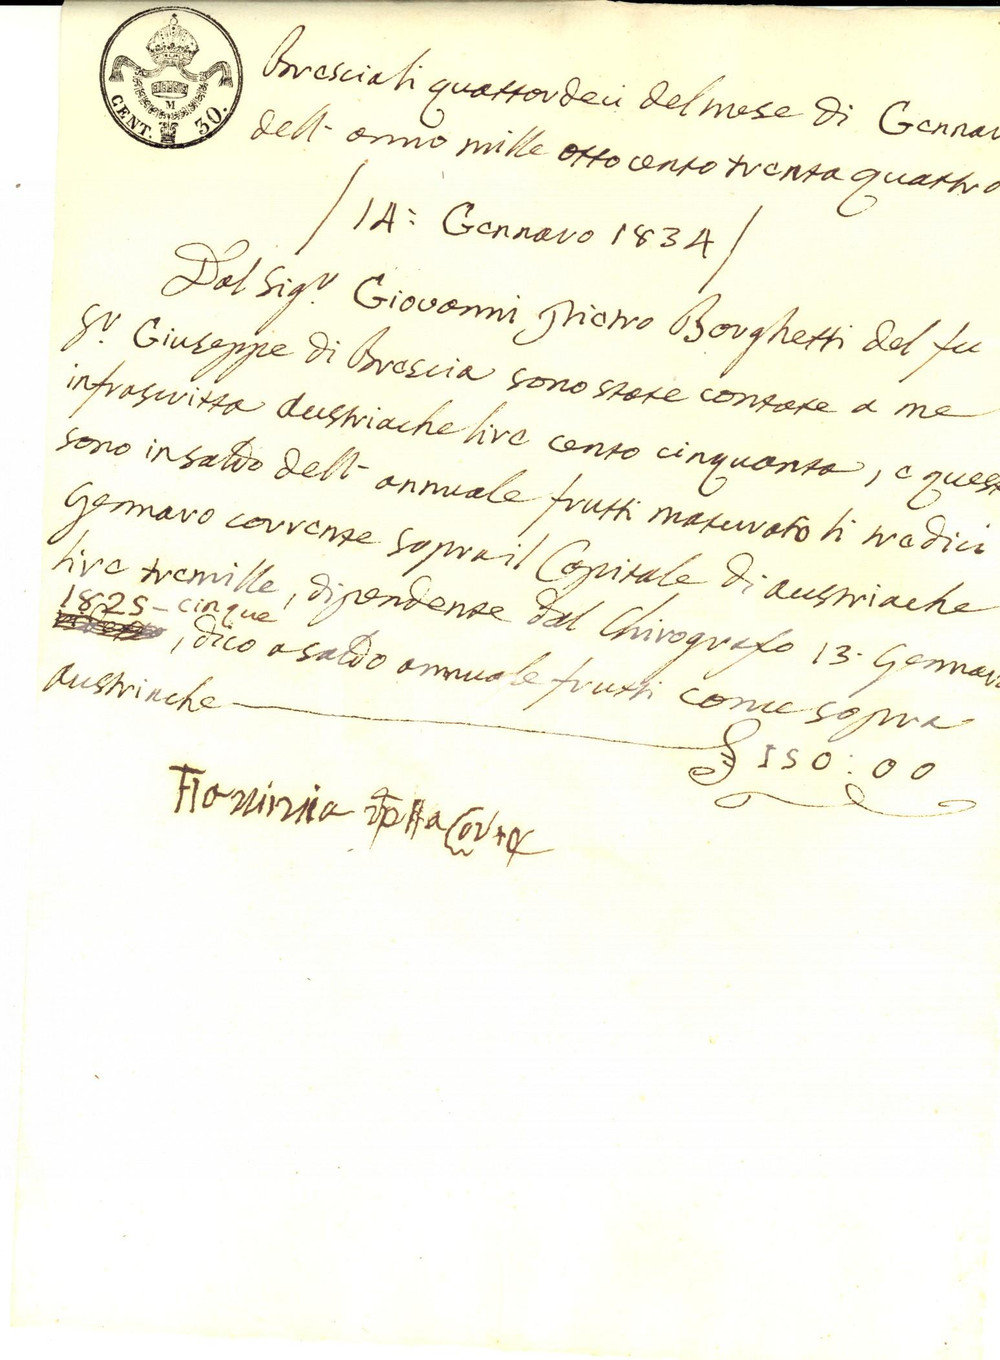 CENT. 30.
M
Brescia li quattordeci del mese di Gennar
dell' anno mille ottocento trenta quattro
/ 14: Gennaro 1834 /
Dal Sigr. Giovanni Pietro Borghetti del fu
Sr. Giuseppe di Brescia sono state contate a me
infrascritta Austriache lire cento cinquanta, e quest
sono in saldo dell' annuale frutti maturato li tredici
Gennaro corrente sopra il Capitale di austriache
lire tremille, dipendente dal Chirografo 13. Gennar
1825 - cinque
, dico a saldo annuale frutti come sopra
austriache — £ 150:00
della Corte